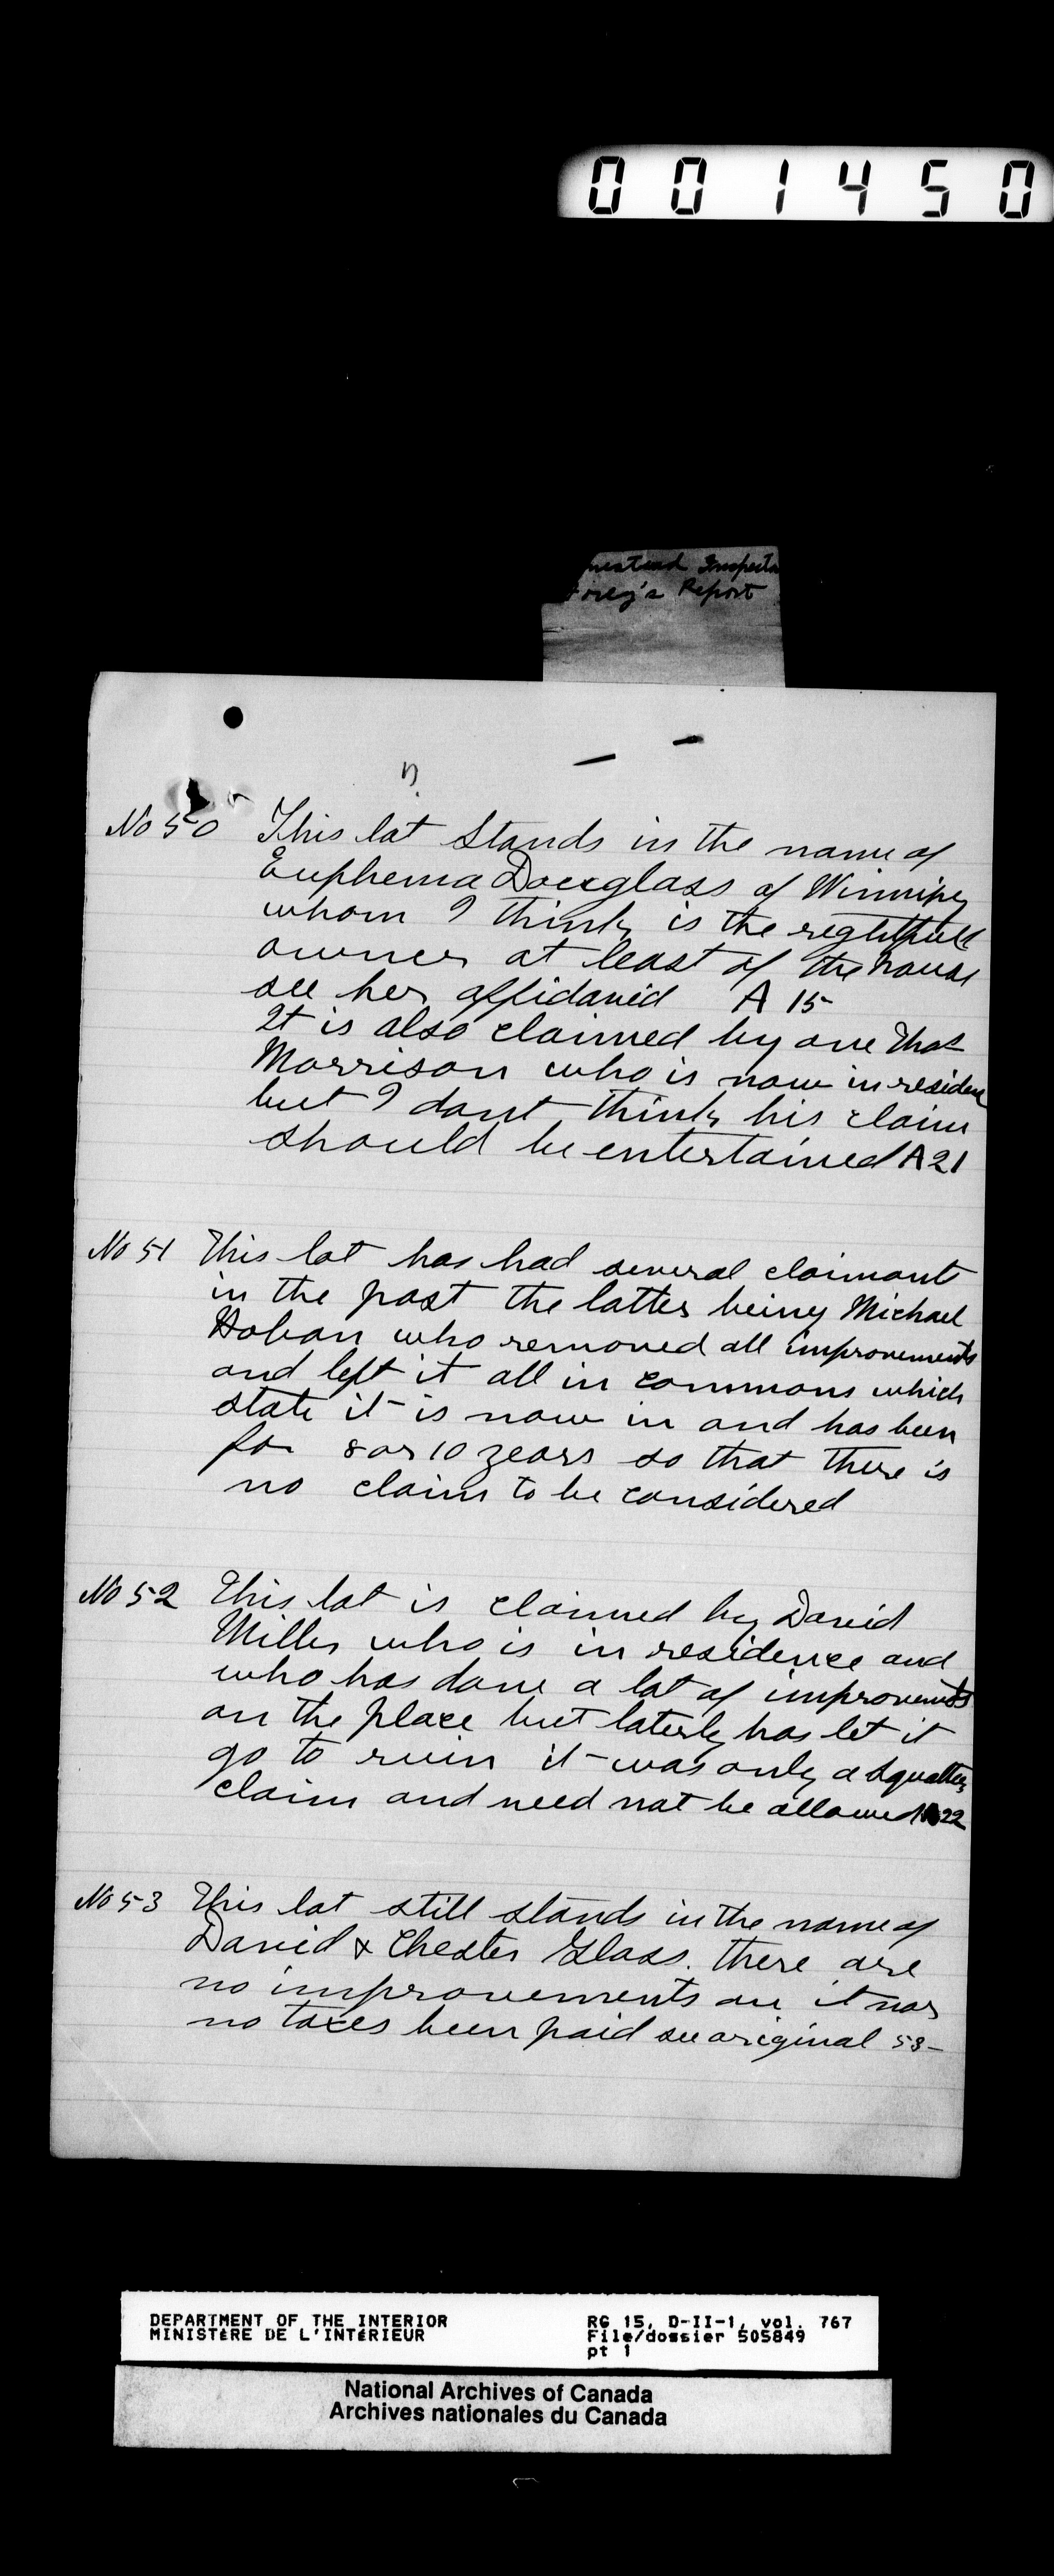 001450
mestead Inspecto
orey's Report
No 50 This lot Stands in the name of
Euphema Douglass of Winnipeg
whom I think is the rightfull
owner at least of the house
see her affidavid A 15
It is also claimed by one Thos
Morrison who is now in residence
but I dont think his claim
should be entertained A 21
No 51 This lot has had several claimants
in the past the latter being Michael
Hoban who removed all improvements
and left it all in commons which
state it is now in and has been
for 8 or 10 years so that there is
no claim to be considered
No 52 This lot is claimed by David
Miller who is in residence and
who has done a lot of improvements
on the place but laterly has let it
go to ruin it was only a squatters
claim and need not be allowed A 22
No 53 This lot still stands in the name of
David & Chester Glass. there are
no improvements on it nor
no taxes been paid see original 53-
DEPARTMENT OF THE INTERIOR
MINISTÈRE DE L'INTÉRIEUR
RG 15, D-II-1, vol. 767
File/dossier 505849
pt 1
National Archives of Canada
Archives nationales du Canada